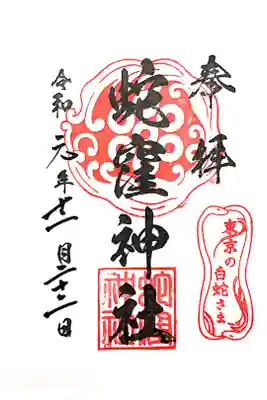 奉拝
蛇窪神社
令和元年十一月二十二日
東京の
白蛇さま
蛇窪
神社